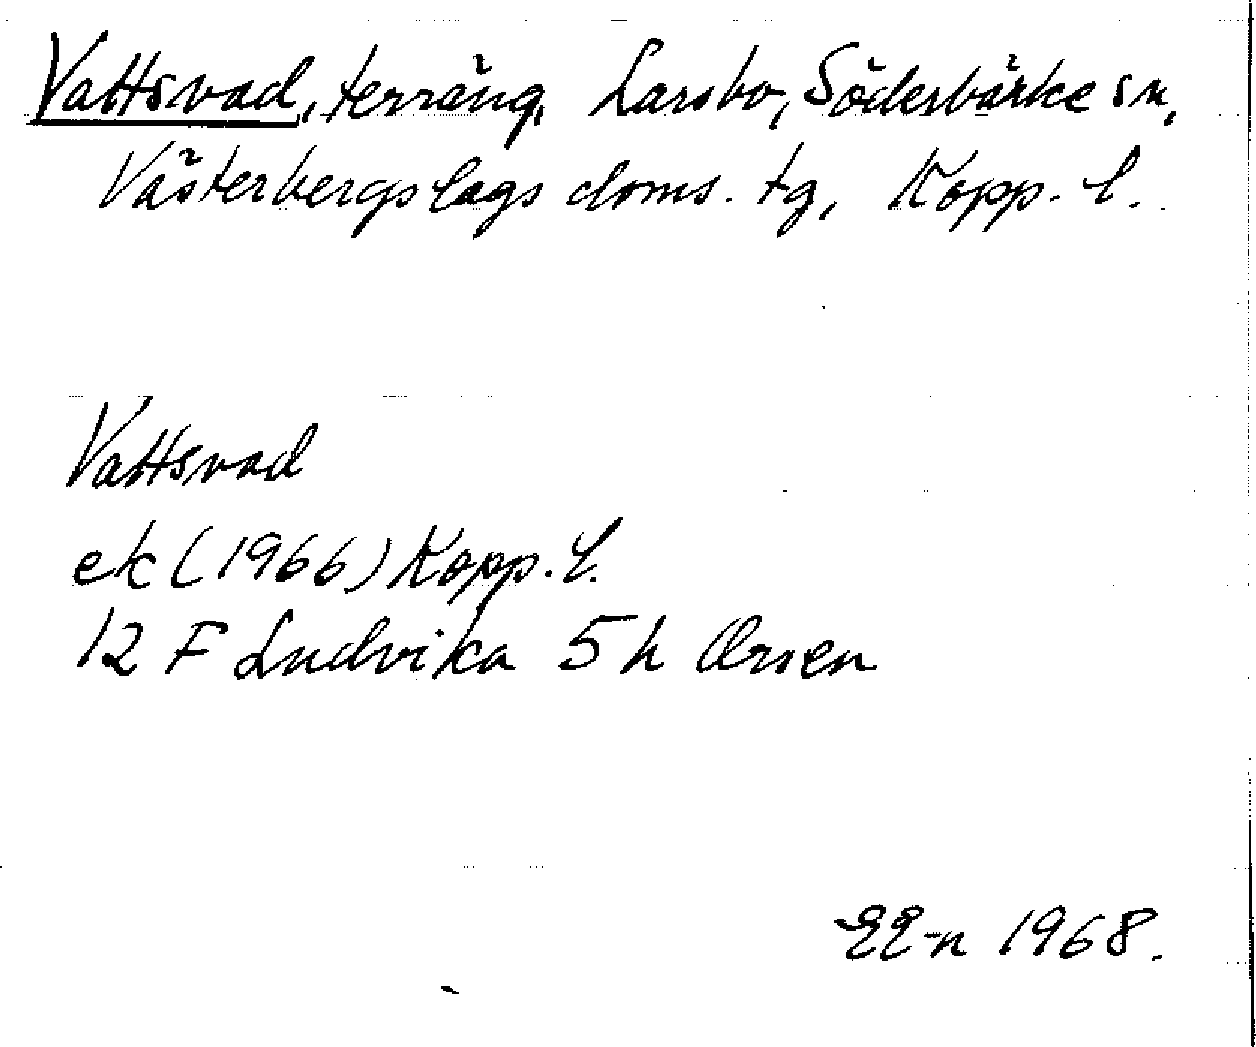 Vattsvad, terräng, Larsbo, Söderbärke sn,
Västerbergslags doms. tg, Kopp. l.
Vattsvad
ek (1966) Kopp. l.
12 F Ludvika 5 h Orsen
1968.